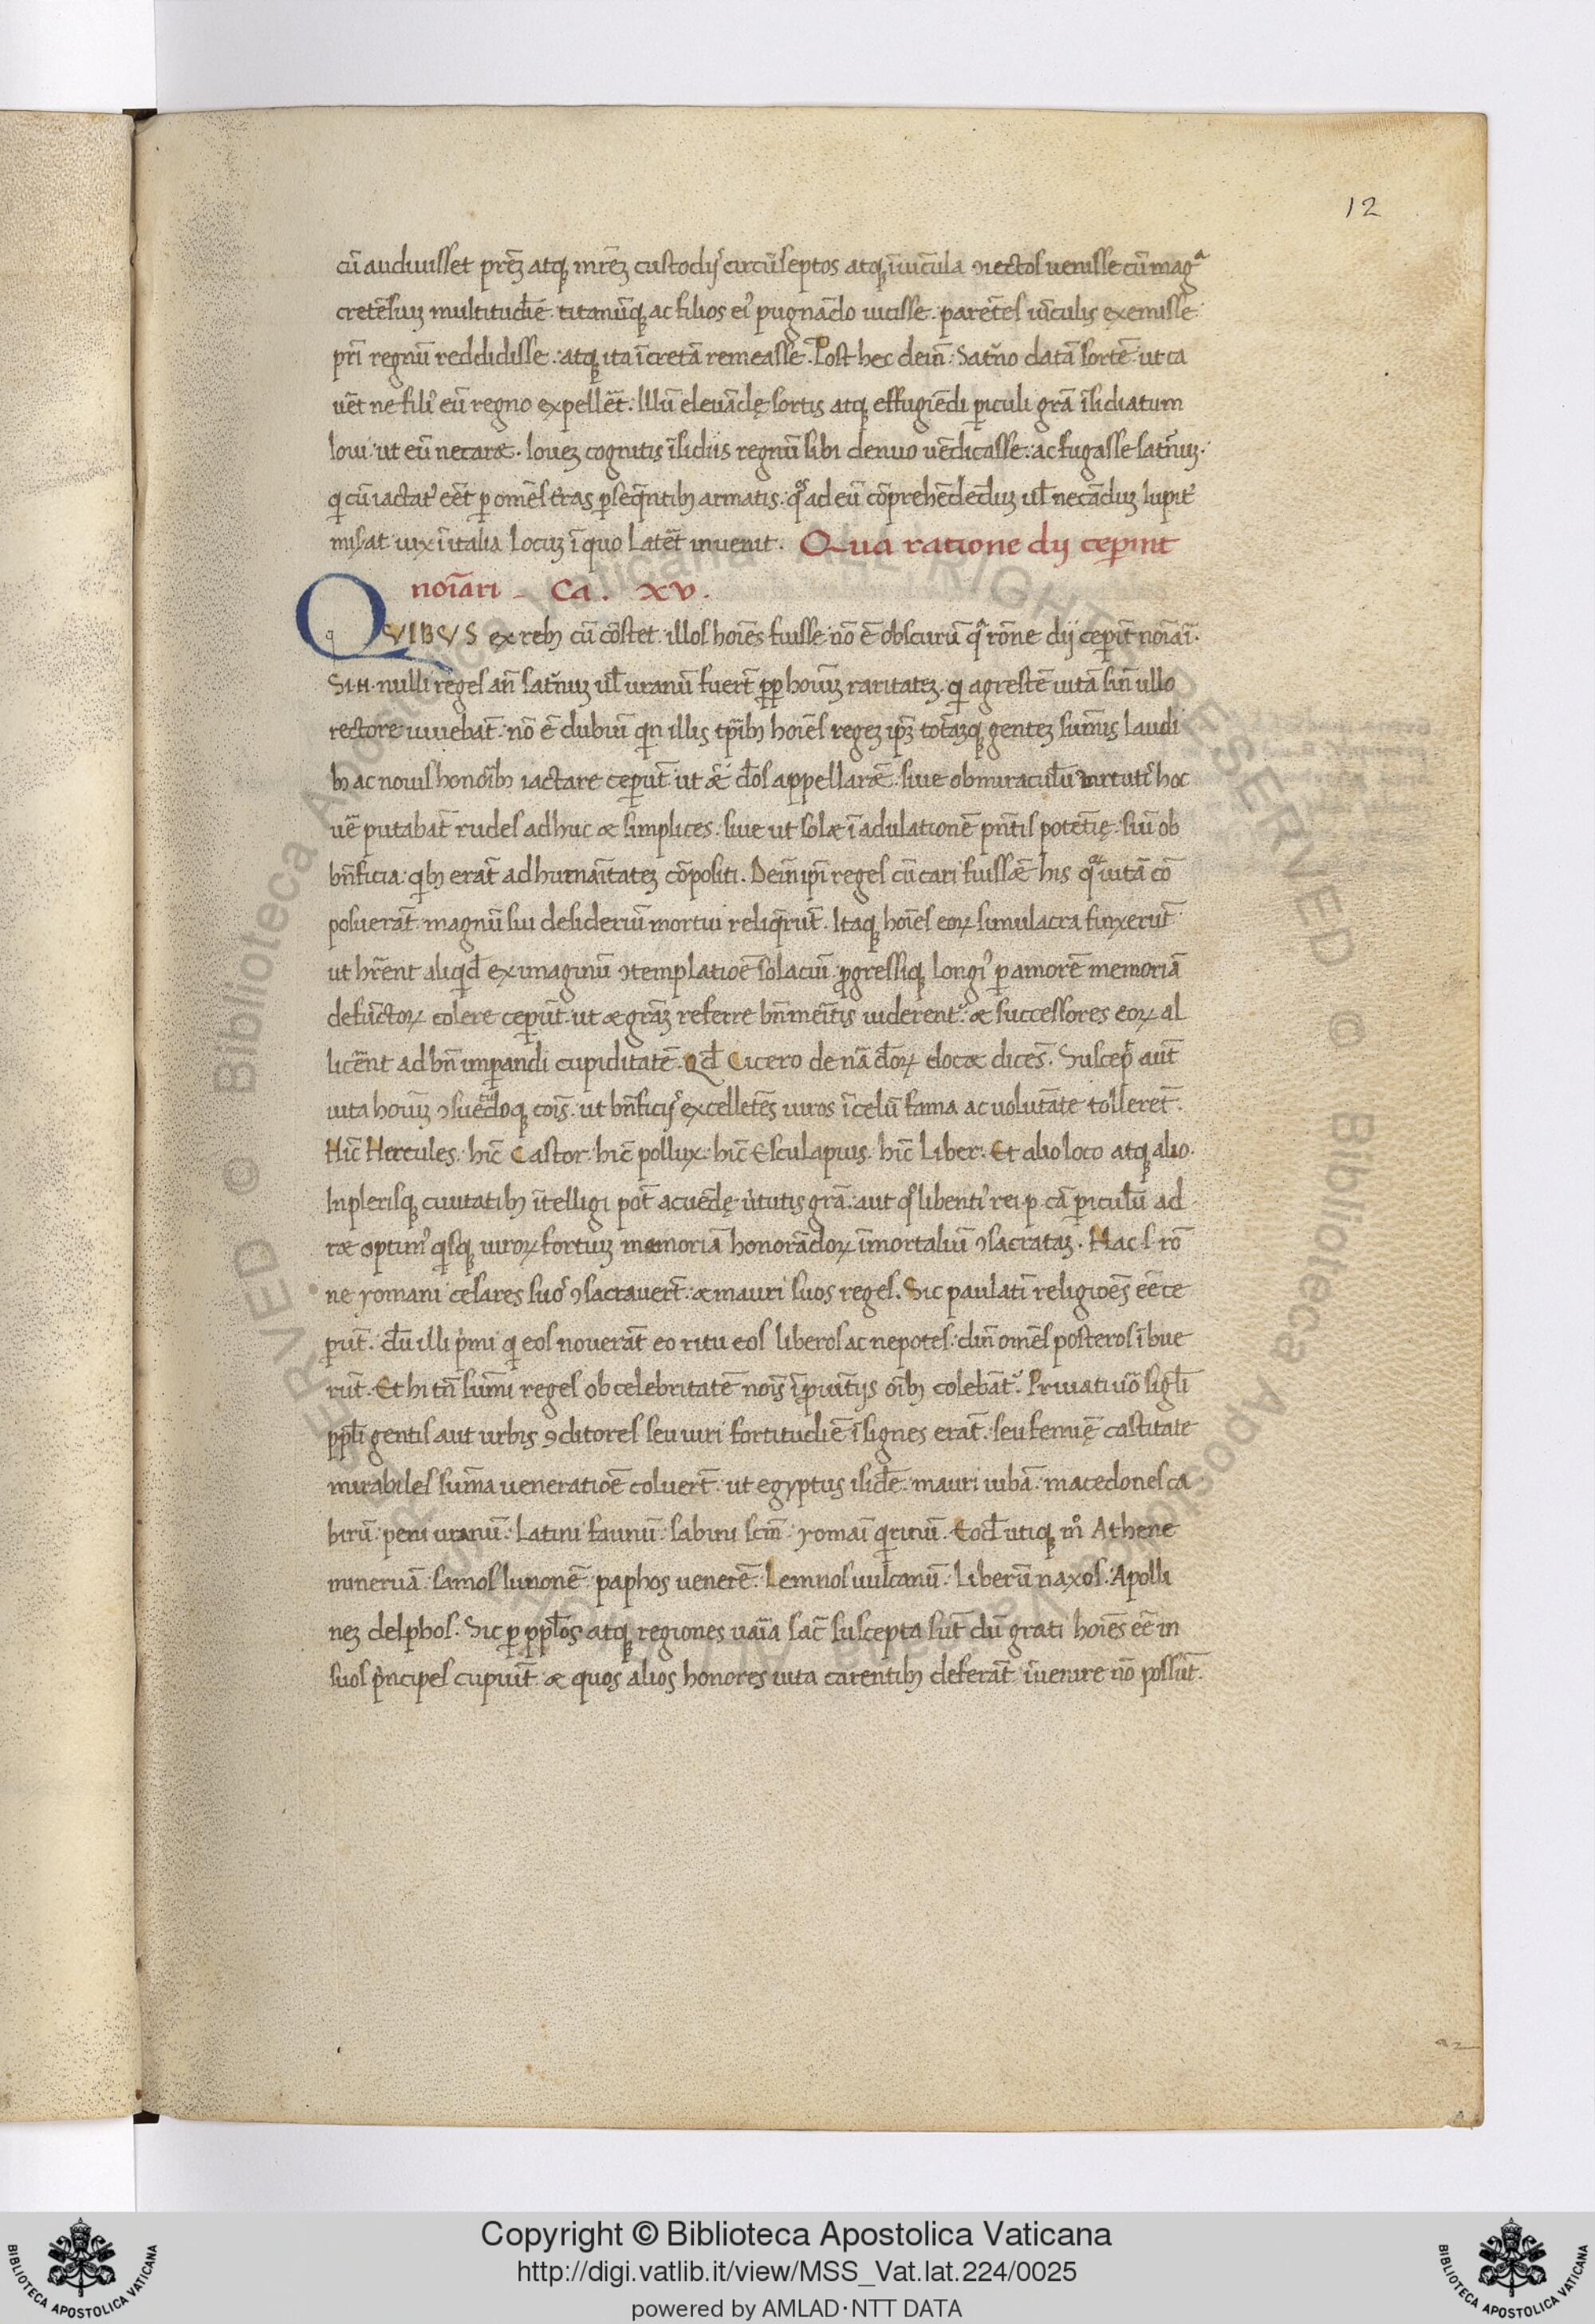 12
cū audiuisset prēȝ atqꝫ mr̄eȝ custodijˢ circūseptos atqꝫ ī uīcula ꝯiectos uenisse cū magᵃ
cretēsiuȝ multitudīe. titanūqꝫ ac filios eiꝰ pugnādo uicisse. parētes uīculis exemisse.
pr̄i regnū reddidisse. atqꝫ ita ī cretā remeasse. Post hec dein̄. Sat̄no datā sortē. ut ca
uēt ne filiꝰ eū regno expellēt. Illū eleuādę sortis atqꝫ effugiēdi ꝑiculi grā īsidiatum
Ioui. ut eū necaræ. Ioueȝ cognitis īsidiis regnū sibi denuo uēdicasse. ac fugasse sat̄nuȝ.
q̇ cū iactatꝰ eēt ꝑ omēs t̄ras ꝑseq̄ntibȝ armatis. qͦs ad eū cōprehēdēduȝ ul̄ necāduȝ Iupit̄
mis̄at uix ī italia locuȝ ī quo latēt inuenit. Qua ratione dij ceperint
noīari _ Ca. xv.
QVIBVS ex rebȝ cū cōstet. illos hoīes fuisse nō ē obscurū qᵃ rōne dij ceperīt noīari.
Si .n. nulli reges an̄ sat̄nuȝ ul̄ uranū fuer̄t ꝓp hoiuȝ raritateȝ. q̇ agrestē uitā sin̄ ullo
rectore uiuebāt. nō ē dubiū q̇n illis tp̄ibȝ hoīes regeȝ ip̄ȝ totāȝqꝫ genteȝ sūmis laudi
bȝ ac nouis honoībȝ iactare ceperūt. ut ǣ d̄os appellarǣ. siue ob miraculū uirtutiˢ hoc
uē putabāt rudes adhuc æ simplices. siue ut solæ ī adulationē pn̄tis potētię. siū ob
bn̄ficia. q̇bȝ erāt ad humāitateȝ cōpositi. Dein ip̄i reges cū cari fuissǣ his qͦȝ uitā cō
posuerāt. magnū sui desideriū mortui reliq̄rūt. Itaqꝫ hoīes eoꝝ simulacra finxerūt
ut hr̄ent aliq̇d ex imaginū ꝯtemplatiōe solaciū. ꝓgressiqꝫ longiꝰ ꝑ amorē memoriā
defūctoꝝ colere ceperūt. ut æ grāȝ referre bn̄meītis uiderentᷣ. æ successores eoꝝ al
licēnt ad bn̄ imꝑandi cupiditatē. Qd̄ Cicero de nā d̄oꝝ docæ dicēs. Suscep̄ aūt
uita hoiuȝ ꝯsuetudoqꝫ cōis. ut bn̄ficijˢ excellētēs uiros ī celū fama ac uolutāte tolleret.
Hīc Hercules. hīc Castor. hīc pollux. hīc Esculapius. hīc Liber. Et alio loco atqꝫ alio.
In plerisqꝫ ciuitatibȝ ītelligi pōt acuēdę uͥtutis grā. aut qͦ libentiꝰ rei .p. cā ꝑiculū ad
ræ optimꝰ q̇sqꝫ uiroꝝ fortiuȝ memoriā honorādoꝝ īmortaliū ꝯsacrataȝ. Hac .s. rō
ne romani cesares suoˢ ꝯsacrauer̄t. æ mauri suos reges. Sic paulatī religiōes eē ce
perūt. dū illi pͥmi q̇ eos nouerāt eo ritu eos liberos ac nepotes. dīn omēs posteros ībue
rūt. Et hi tn̄ sūmi reges ob celebritatē nōis ī ꝓuītijs oībȝ colebātᷣ. Priuatī uͦo sigl̄i
ppl̄i gentis aut urbis ꝯditores seu uiri fortitudīe īsignes erāt. seu femīę castitate
mirabiles sūma ueneratiōe coluer̄t. ut egyptus isidē. mauri iubā. macedones ca
birū. peni uranū. Latini faunū. sabini scm̄. romāi q̇rinū. Eod̄ utiqꝫ mͦ Athene
mineruā. samos Iunonē. paphos uenerē. Lemnos uulcanū. Liberū naxos. Apolli
neȝ delphos. Sic ꝑ ppl̄os atqꝫ regiones uāia sac̄ suscepta sūt dū grati hoīes eē in
suos pͥncipes cupiūt. æ quos alios honores uita carentibȝ deferāt īuenire nō possūt.
Copyright © Biblioteca Apostolica Vaticana
http://digi.vatlib.it/view/MSS_Vat.lat.224/0025
powered by AMLAD·NTT DATA